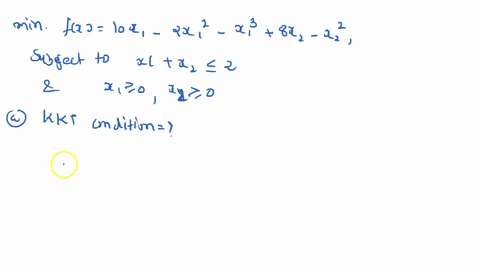 min. f(x) = 10x₁ - 2x₁² - x₁³ + 8x₂ - x₂²,
Subject to x1 + x₂ ≤ 2
& x₁ ≥ 0, x₂ ≥ 0
ⓐ KKT condition = ?